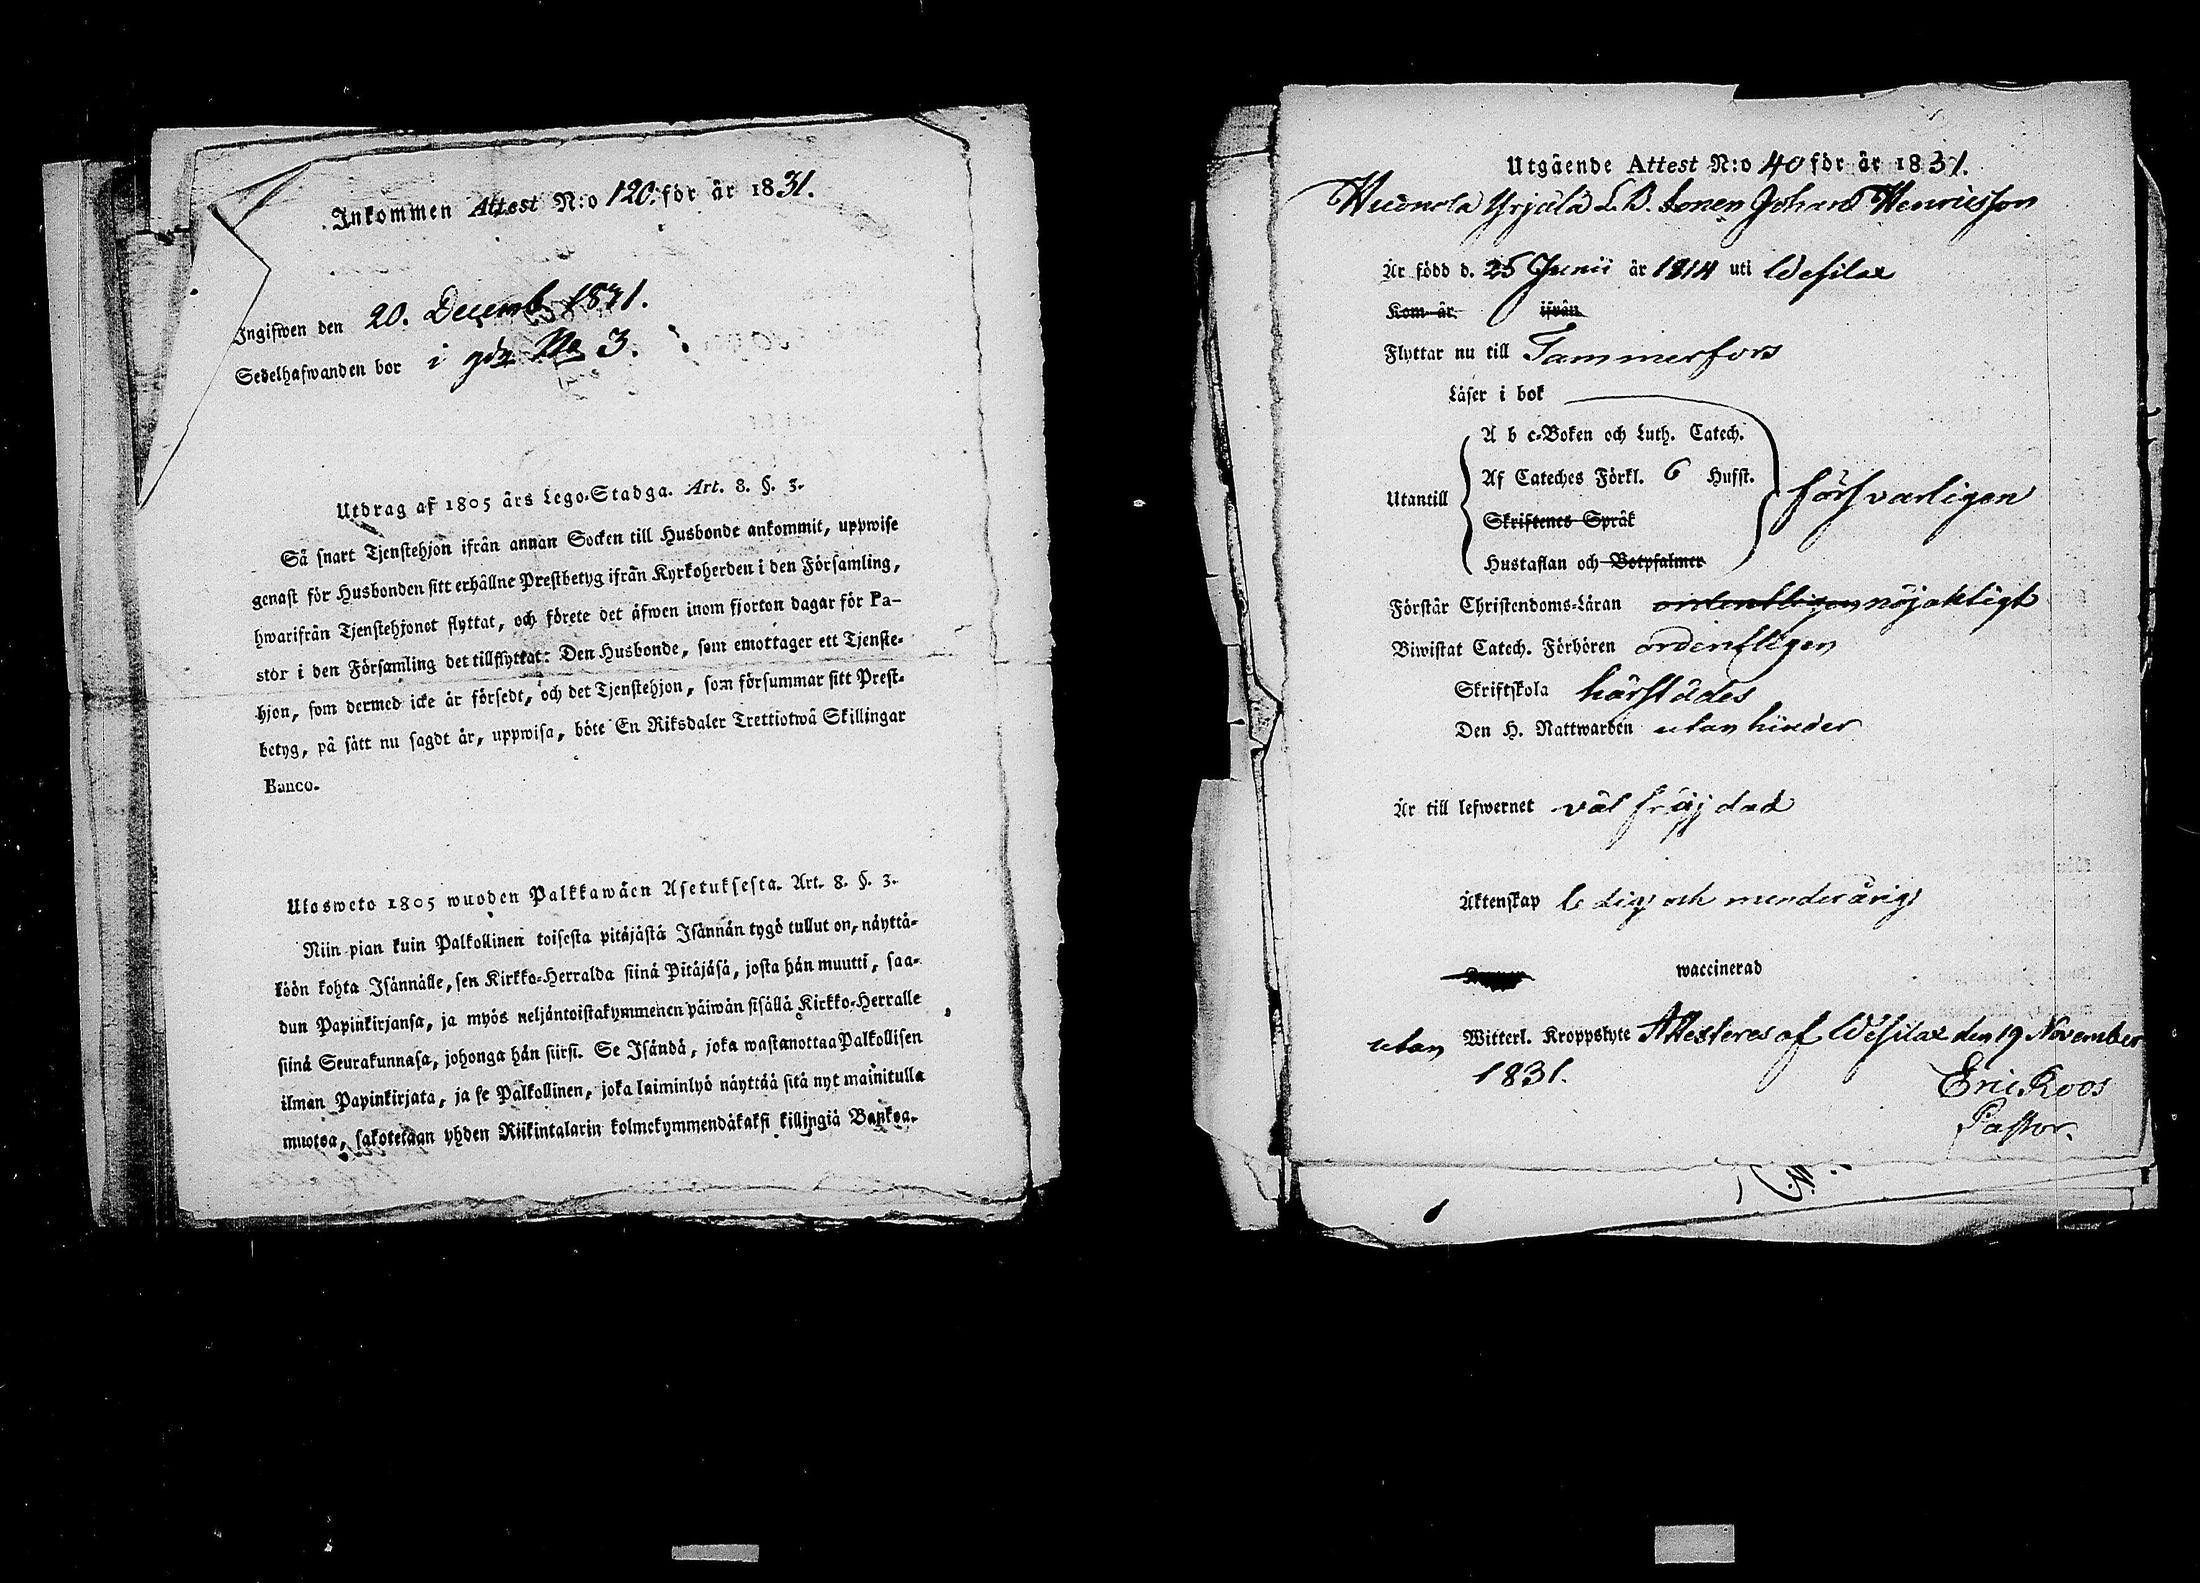 Inkommen Attest N:o 120. för år 1831.
Ingifwen den 20. Decemb. 1831.
Sedelhafwanden bor i gdn No 3.
Utdrag af 1805 års Lego-Stadga. Art. 8. §. 3.
Så snart Tjenstehjon ifrån annan Socken till Husbonde ankommit, uppwise
genast för Husbonden sitt erhållne Prestbetyg ifrån Kyrkoherden i den Församling,
hwarifrån Tjenstehjonet flyttat, och förete det äfwen inom fjorton dagar för Pa-
stor i den Församling det tillflyttat: Den Husbonde, som emottager ett Tjenste-
hjon, som dermed icke är försedt, och det Tjenstehjon, som försummar sitt Prest-
betyg, på sätt nu sagdt är, uppwisa, böte En Riksdaler Trettiotwå Skillingar
Banco.
Ulosweto 1805 wuoden Palkkawäen Asetuksesta. Art. 8. §. 3.
Niin pian kuin Palkollinen toisesta pitäjästä Isännän tygö tullut on, näyttä-
köön kohta Isännälle, sen Kirkko-Herralda siinä Pitäjäsä, josta hän muutti, saa-
dun Papinkirjansa, ja myös neljäntoistakymmenen päiwän sisällä Kirkko-Herralle
siinä Seurakunnasa, johonga hän siirsi. Se Isändä, joka wastanottaa Palkollisen
ilman Papinkirjata, ja se Palkollinen, joka laiminlyö näyttää sitä nyt mainitulla
muotoa, sakotetaan yhden Riikintalarin kolmekymmendäkaksi killingiä Bankoa.
Utgående Attest N:o 40 för år 1831.
Yrjälä L.B. Sonen Johan Henricsson
Är född d. 25 Junii år 1814 uti Wesilax
Kom år ifrån
Flyttar nu till Tammerfors
Läser i bok
A b c-Boken och Luth. Catech.
Af Cateches Förkl. 6 Hufst.
Utantill försvarligen
Skriftenes Språk
Hustaflan och Botpsalmer
Förstår Christendoms-Läran ordentligen nöjaktigt
Biwistat Catech. Förhören ordentligen
Skriftskola härstädes
Den H. Nattwarden utan hinder
Är till lefwernet väl fräjdad
Äktenskap ledig och minderårig
waccinerad
utan Witterl. Kroppslyte Attesteres af Wesilax den 19 November
1831.
Eric Roos
Pastor.